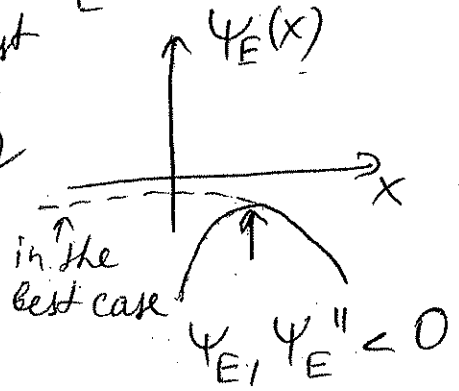 ψ_E(x)
x
in the
best case
ψ_E, ψ_E'' < 0